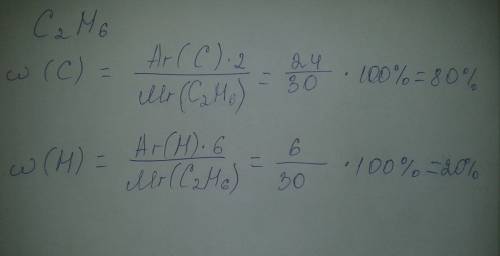 C₂H₆
ω (C) = Ar(C)·2 / Mr(C₂H₆) = 24 / 30 · 100% = 80%
ω (H) = Ar(H)·6 / Mr(C₂H₆) = 6 / 30 · 100% = 20%